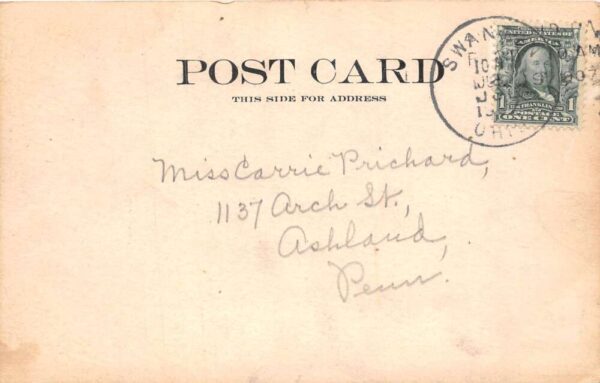 POST CARD
THIS SIDE FOR ADDRESS
UNITED STATES OF
AMERICA
FRANKLIN
POSTAGE
1 ONE CENT 1
Miss Carrie Prichard,
1137 Arch St.,
Ashland,
Penn.